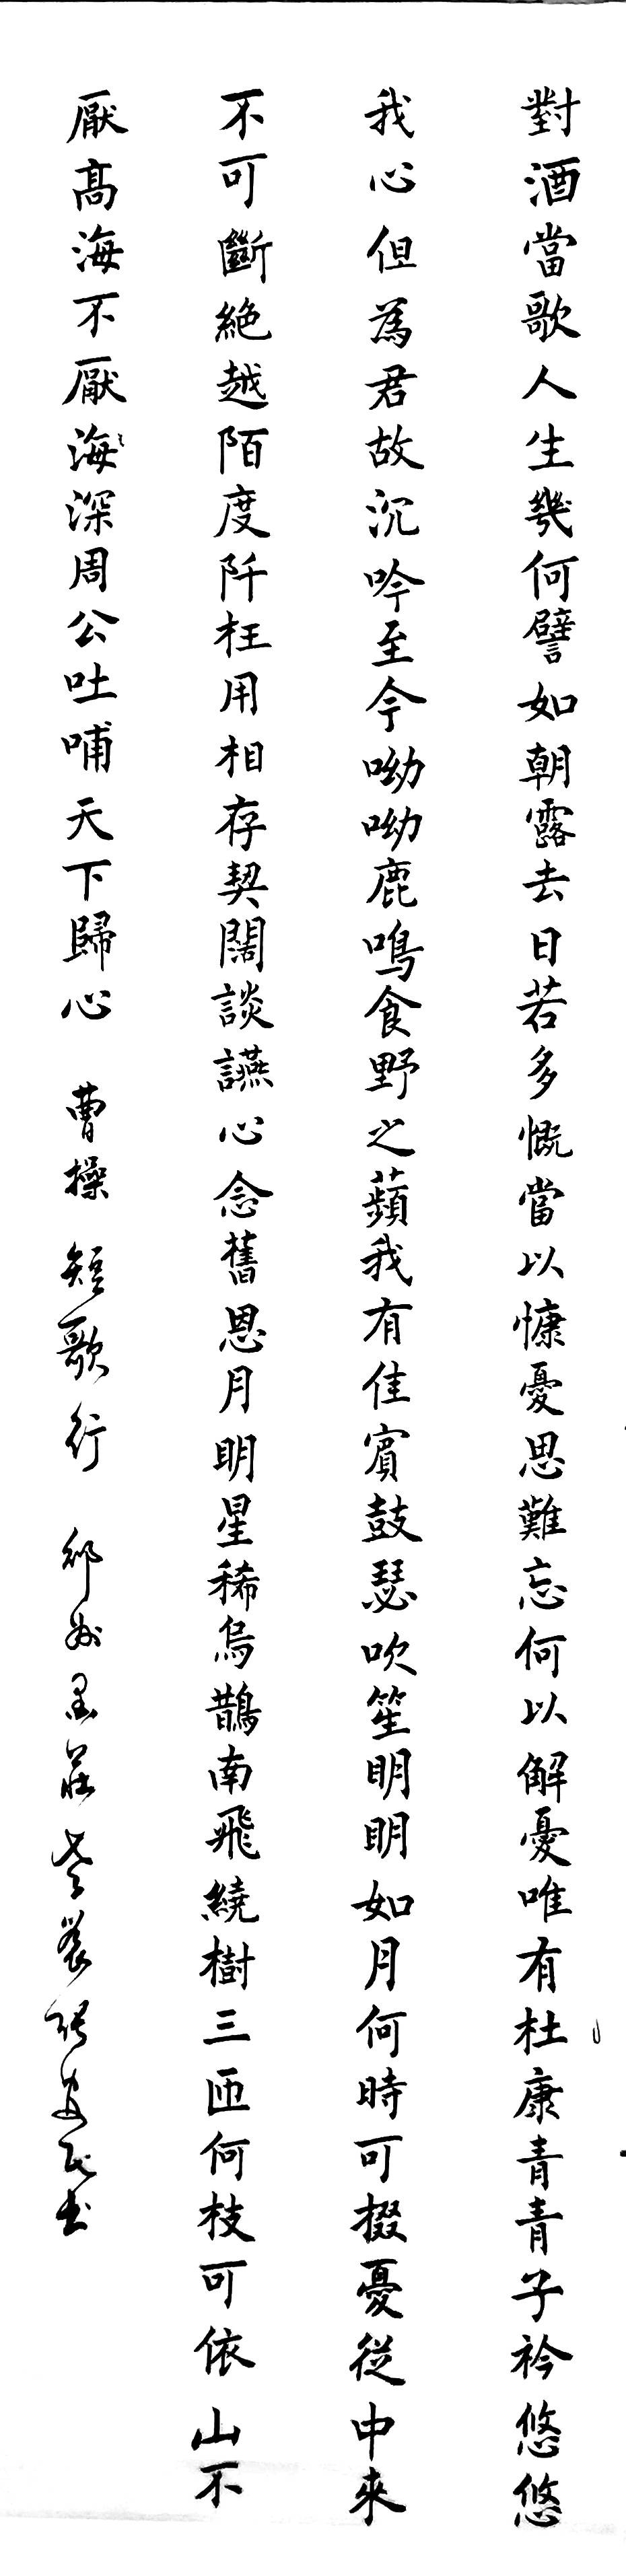 對酒當歌人生幾何譬如朝露去日若多慨當以慷憂思難忘何以解憂唯有杜康青青子衿悠悠
我心但為君故沉吟至今呦呦鹿鳴食野之蘋我有佳賓鼓瑟吹笙明明如月何時可掇憂從中來
不可斷絕越陌度阡枉用相存契闊談讌心念舊恩月明星稀烏鵲南飛繞樹三匝何枝可依山不
厭高海不厭海深周公吐哺天下歸心 曹操 短歌行 書